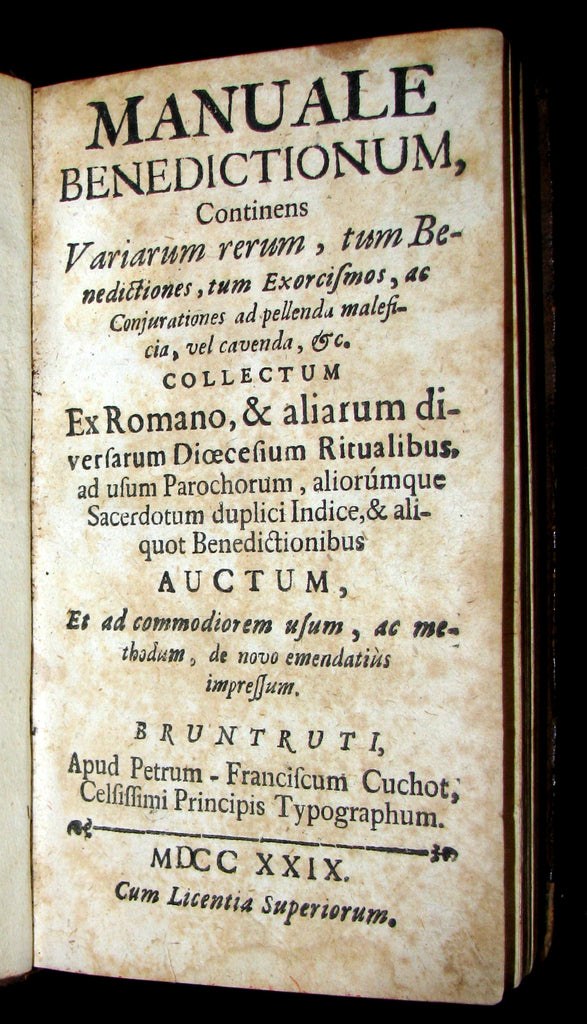 MANUALE
BENEDICTIONUM,
Continens
Variarum rerum, tum Be-
nedictiones, tum Exorciſmos, ac
Conjurationes ad pellenda malefi-
cia, vel cavenda, &c.
COLLECTUM
Ex Romano, & aliarum di-
verſarum Diœceſium Ritualibus,
ad uſum Parochorum, aliorúmque
Sacerdotum duplici Indice, & ali-
quot Benedictionibus
AUCTUM,
Et ad commodiorem uſum, ac me-
thodum, de novo emendatiùs
impreſſum.
BRUNTRUTI,
Apud Petrum-Franciſcum Cuchot,
Celſiſſimi Principis Typographum.
MDCC XXIX.
Cum Licentiâ Superiorum.